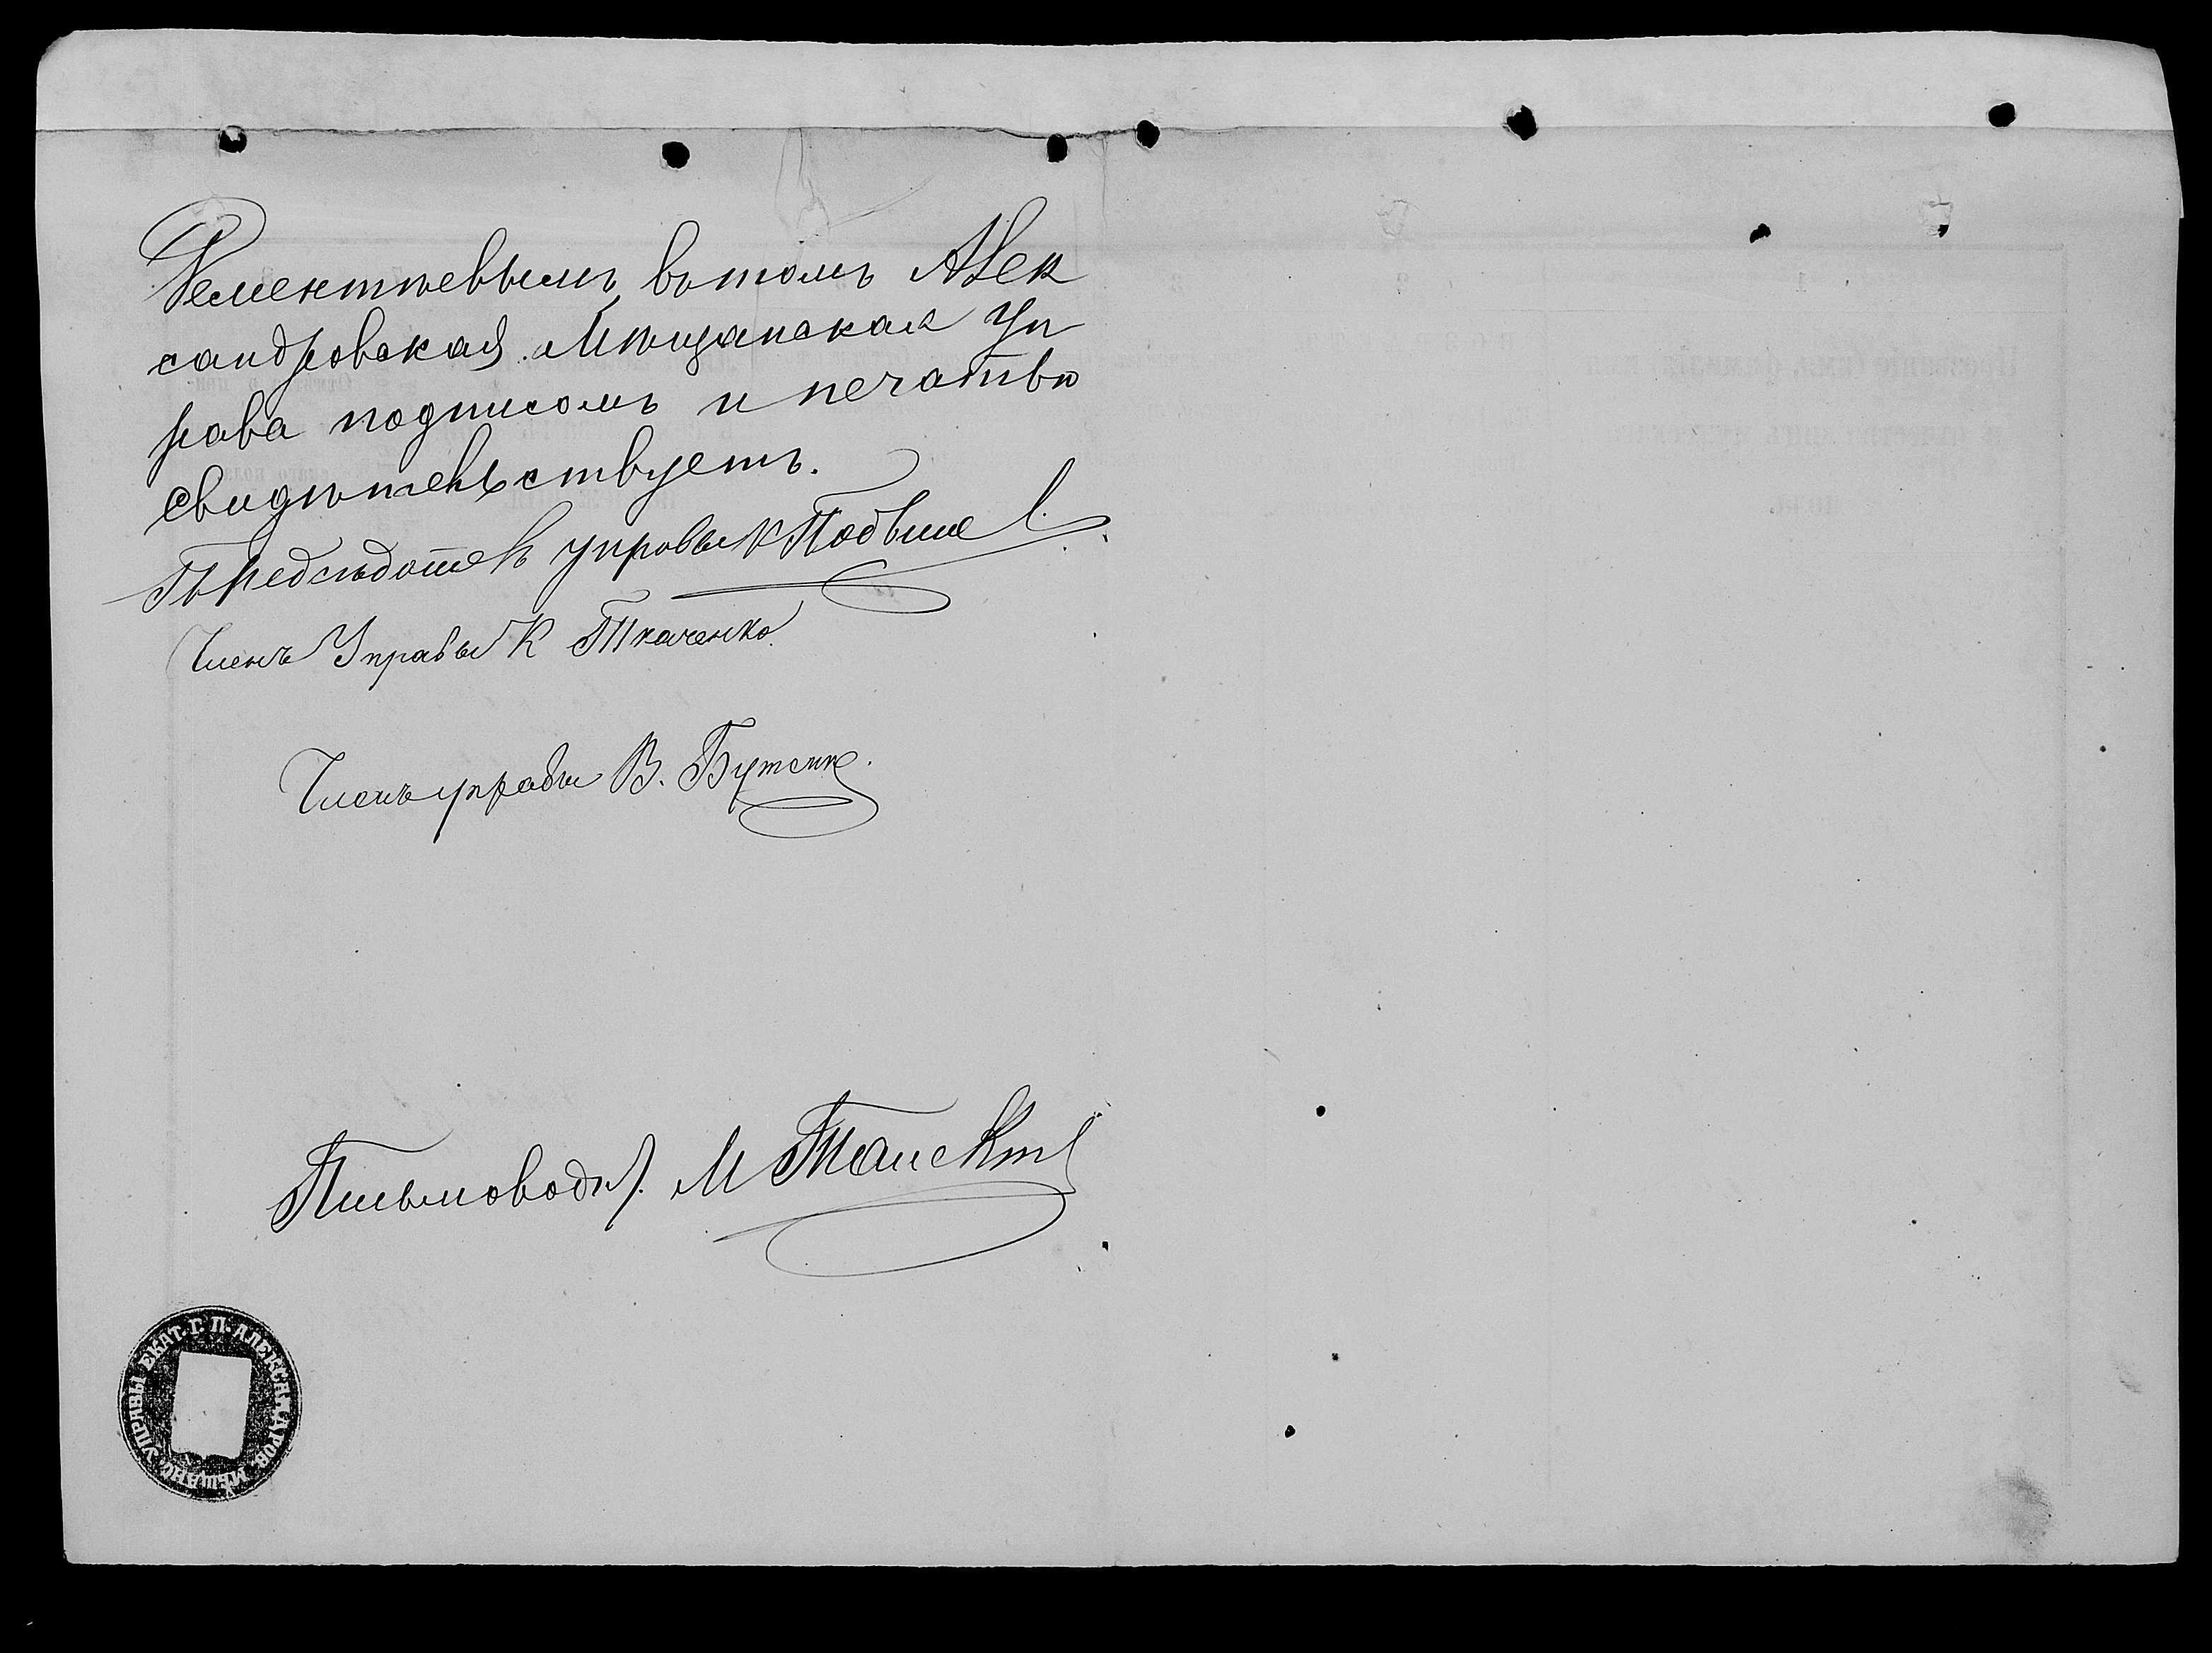 въ томъ Алек
сандровская Мѣщанская Уп
рава подписомъ и печатью
свидѣтельствуетъ.
Предсѣдатель управы К
Членъ Управы К Ткаченко.
Членъ управы В. Бутенко.
Письмовод. М
УПРАВЫ ЕКАТ. Г. П. АЛЕКСАНДРОВ. МѢЩАНС.